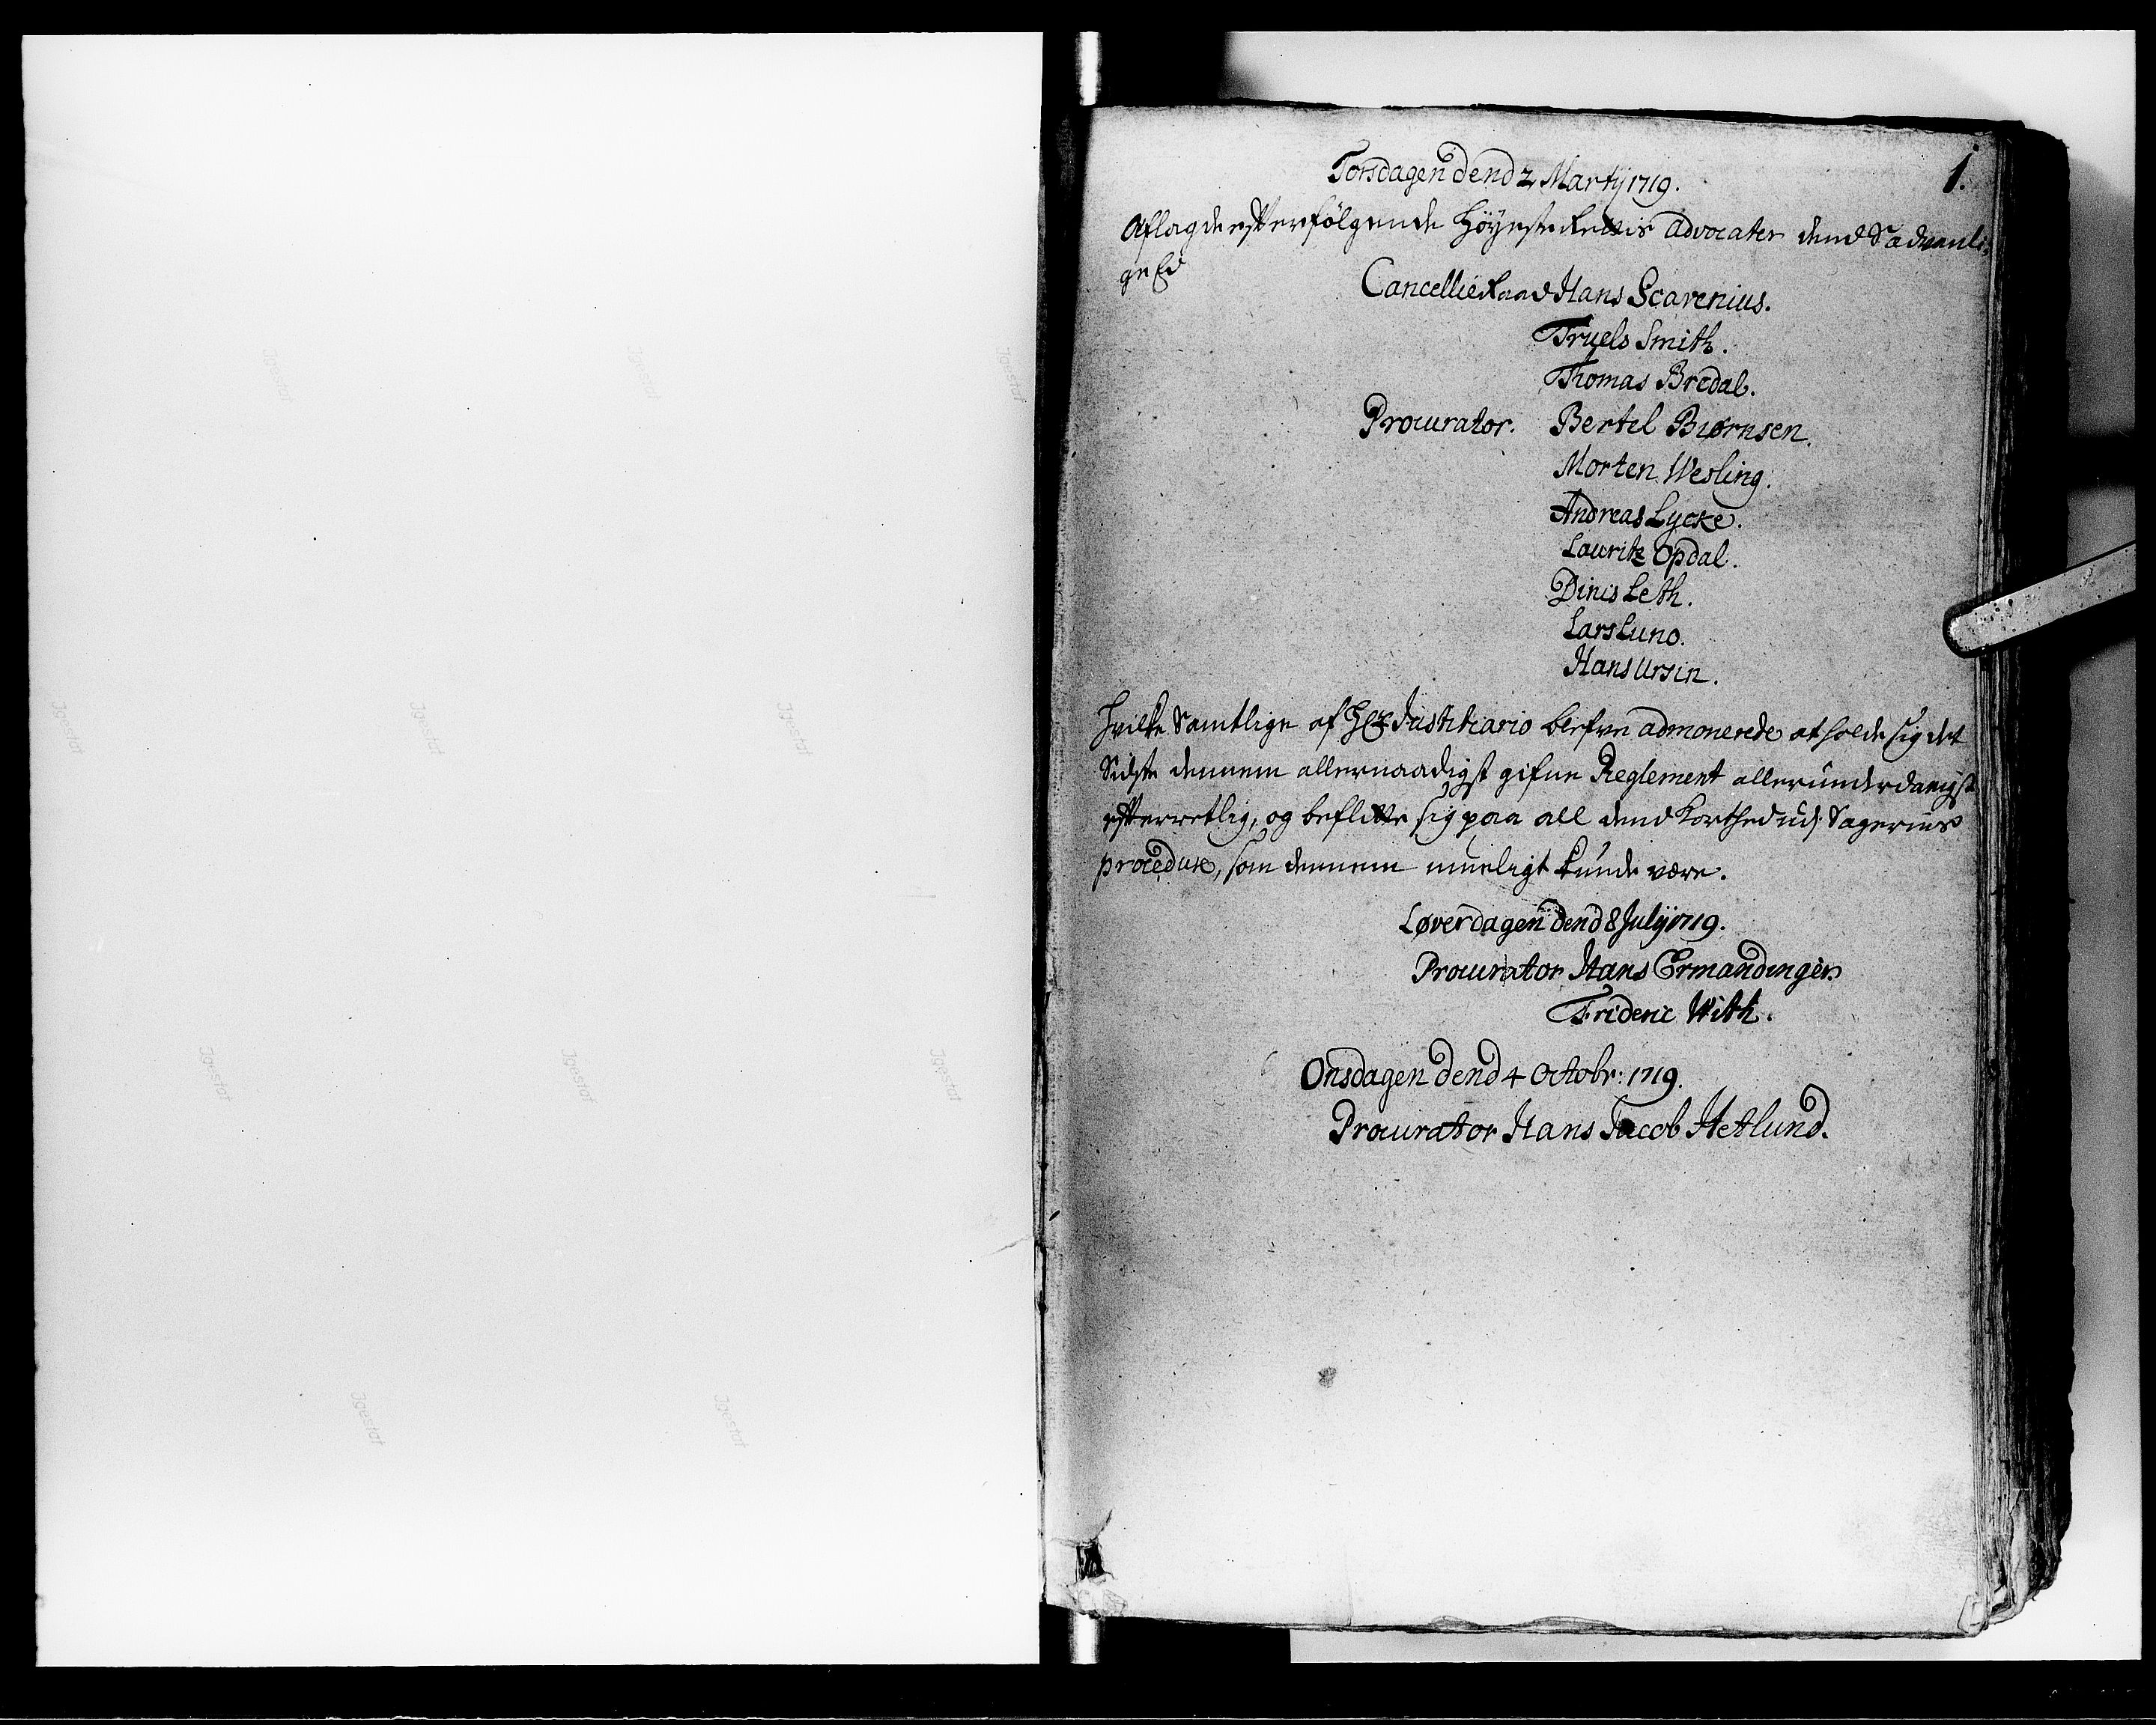 1.
Torsdagen dend 2 Martij 1719.
Aflagde efterfölgende Höyeste Rettis Advocater dend Sædvanli-
ge Eed
Cancellie Raad Hans Scavenius.
Truels Smith.
Thomas Bredal.
Procurator. Bertel Biørnsen.
Morten Wesling.
Andreas Lycke.
Lauritz Opdal.
Dinis Leth.
Lars Luno.
Hans Ursin.
Hvilke Samtlige af Hr Justitiario blefve admonerede at holde sig det
Sidste dennem allernaadigst gifne Reglement allerunderdanigst
efterretlig, og beflitte sig paa all dend Korthed udj Sagernis
procedure, som dennem mueligt kunde være.
Løverdagen dend 8 Julij 1719.
Procurator Hans Ermandinger
Frideric With.
Onsdagen dend 4 Octobr: 1719.
Procurator Hans Jacob Hetlund.